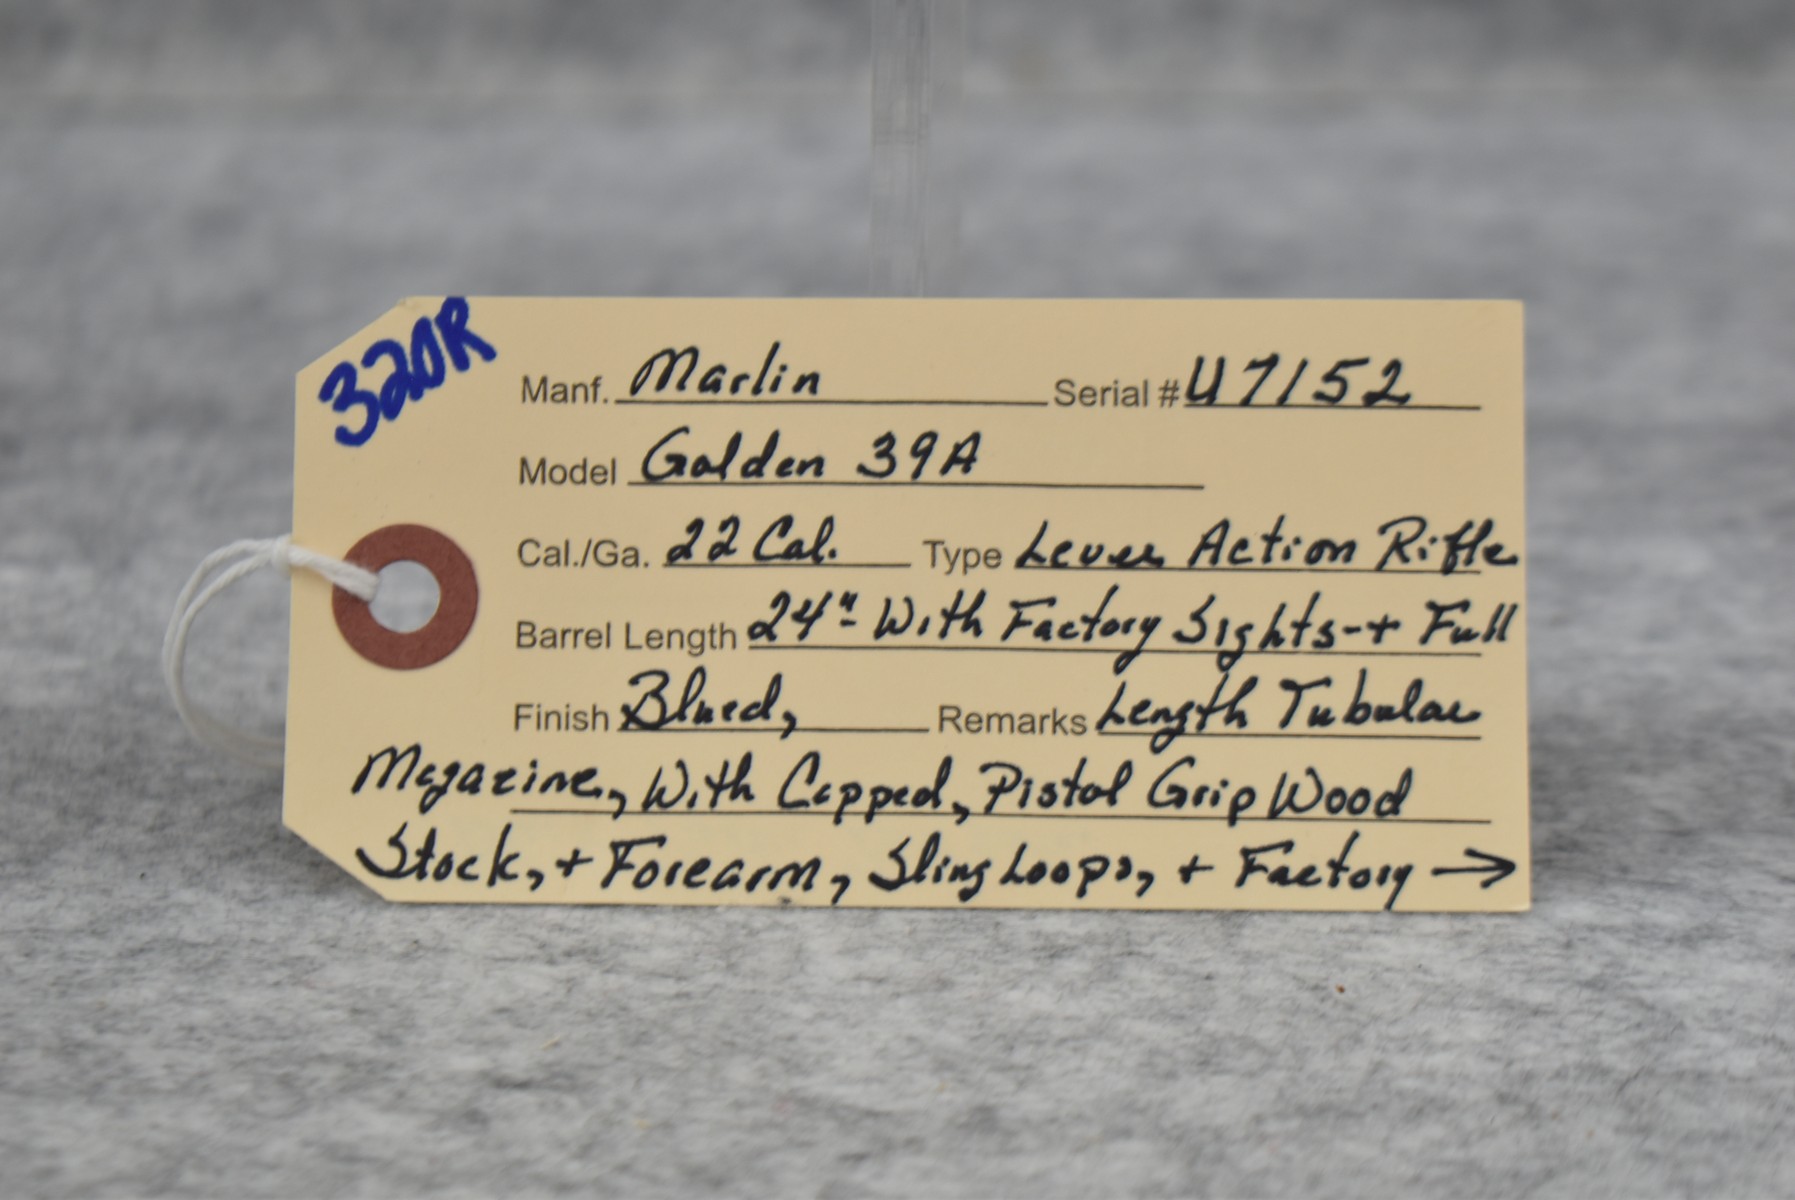 320R
Manf. Marlin Serial # U7152
Model Golden 39A
Cal./Ga. 22 Cal. Type Lever Action Rifle
Barrel Length 24" With Factory Sights-+ Full
Finish Blued, Remarks Length Tubular
Magazine, With Capped, Pistol Grip Wood
Stock, + Forearm, Sling Loops, + Factory →